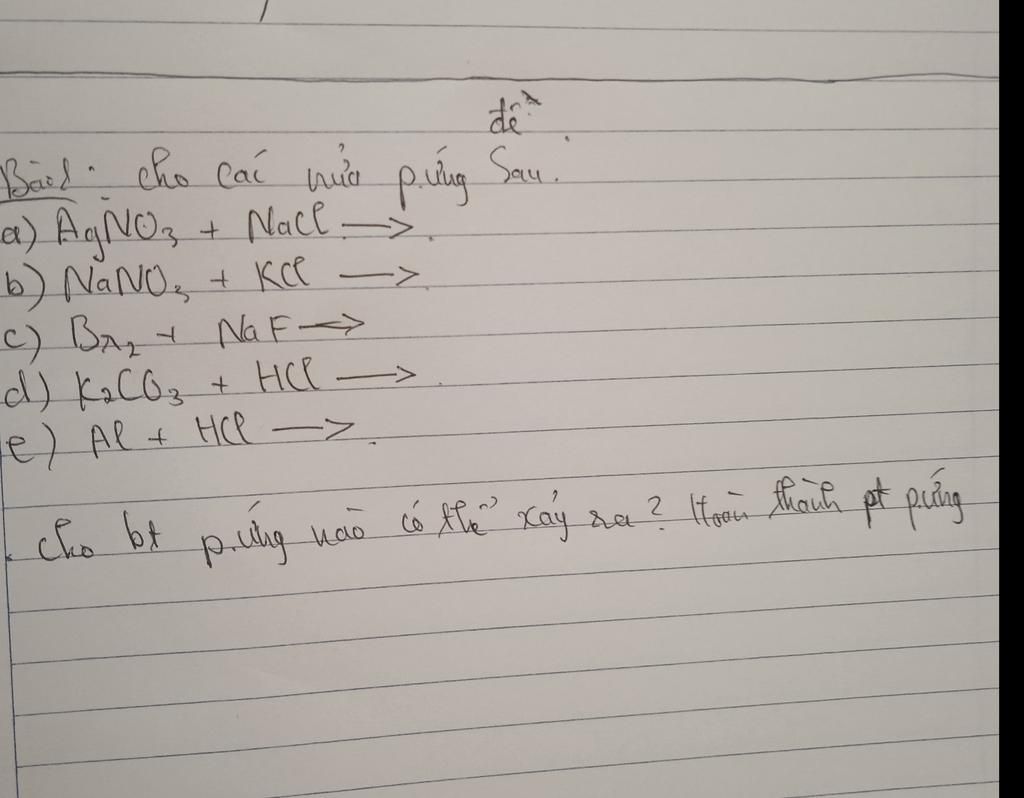 đề
Bài1: Cho các nửa p.ứng Sau:
a) AgNO₃ + NaCl →.
b) NaNO₃ + KCl →.
c) Br₂ + NaF →
d) K₂CO₃ + HCl →.
e) Al + HCl →.
. Cho bt p.ứng nào có thể xảy ra? Hoàn thành pt p.ứng